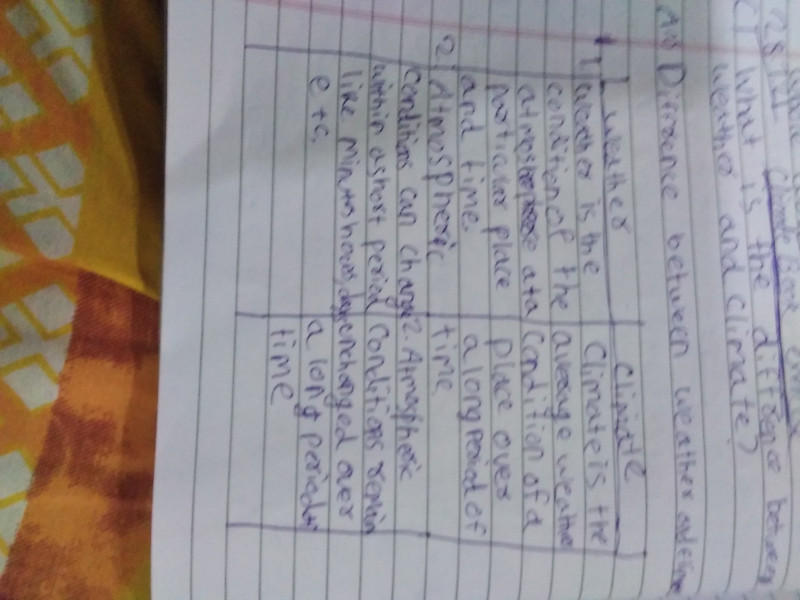 C) What is the diffrence between
weather and climate?
Ans Diffrence between weather and
weather
1. weather is the
condition of the
atmosphere at a
particular place
and time.
2. Atmospheric
conditions can change
within a short period
like minutes hours, days
etc.
Climate
Climate is the
average weather
condition of a
place over
a long period of
time
2. Atmospheric
conditions remain
unchanged over
a long period of
time